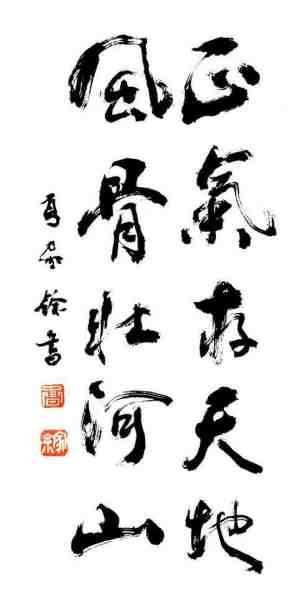 正氣存天地
風骨壯河山